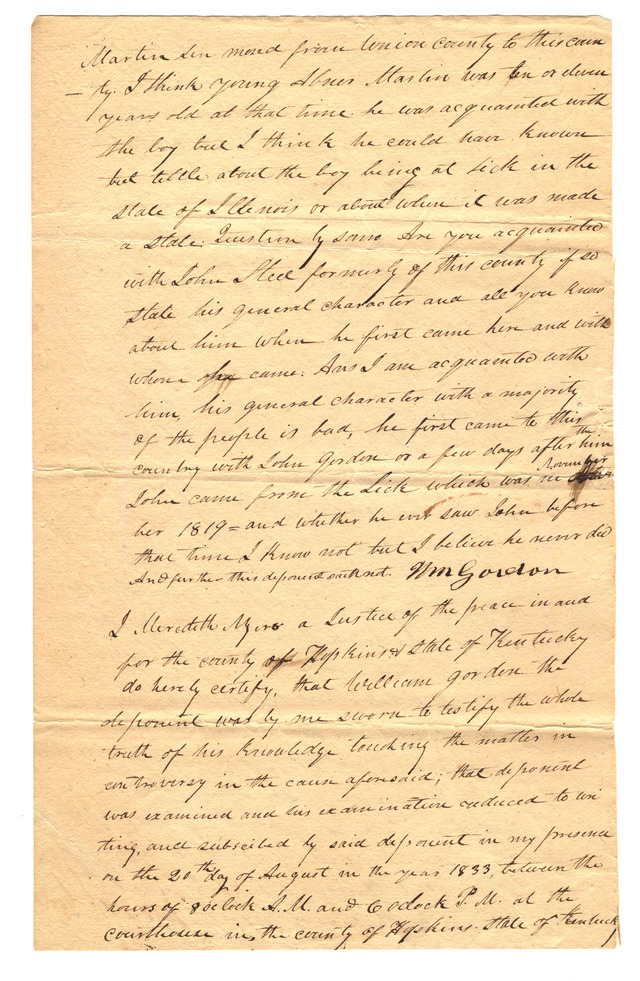 Martin Sen moved from Union county to this coun
ty. I think young Abner Martin was ten or eleven
years old at that time he was acquainted with
the boy but I think he could have known
but little about the boy being at Lick in the
State of Illenois or about when it was made
a State. Question by same Are you acquainted
with John Sled formerly of this county if so
state his general character and all you know
about him when he first came here and with
whom came: Ans I am acquainted with
him, his general character with a majority
of the people is bad, he first came to this
country with John Gordon or a few days after the him
John came from the Lick which was in November
ber 1819 = and whether he ever saw John before
that time I know not but I believe he never did
And further this deponent saith not. Wm Gordon
I Meredith Myers a Justice of the peace in and
for the county of Hopkins & State of Kentucky
do hereby certify, that William Gordon the
deponent was by me sworn to testify the whole
truth of his knowledge touching the matter in
controversy in the cause aforesaid; that deponent
was examined and his examination reduced to wri
ting, and subscribed by said deponent in my presence
on the 20th day of August in the year 1833, between the
hours of 8 oclock A.M. and 6 oclock P.M. at the
courthouse in the county of Hopkins State of Kentucky